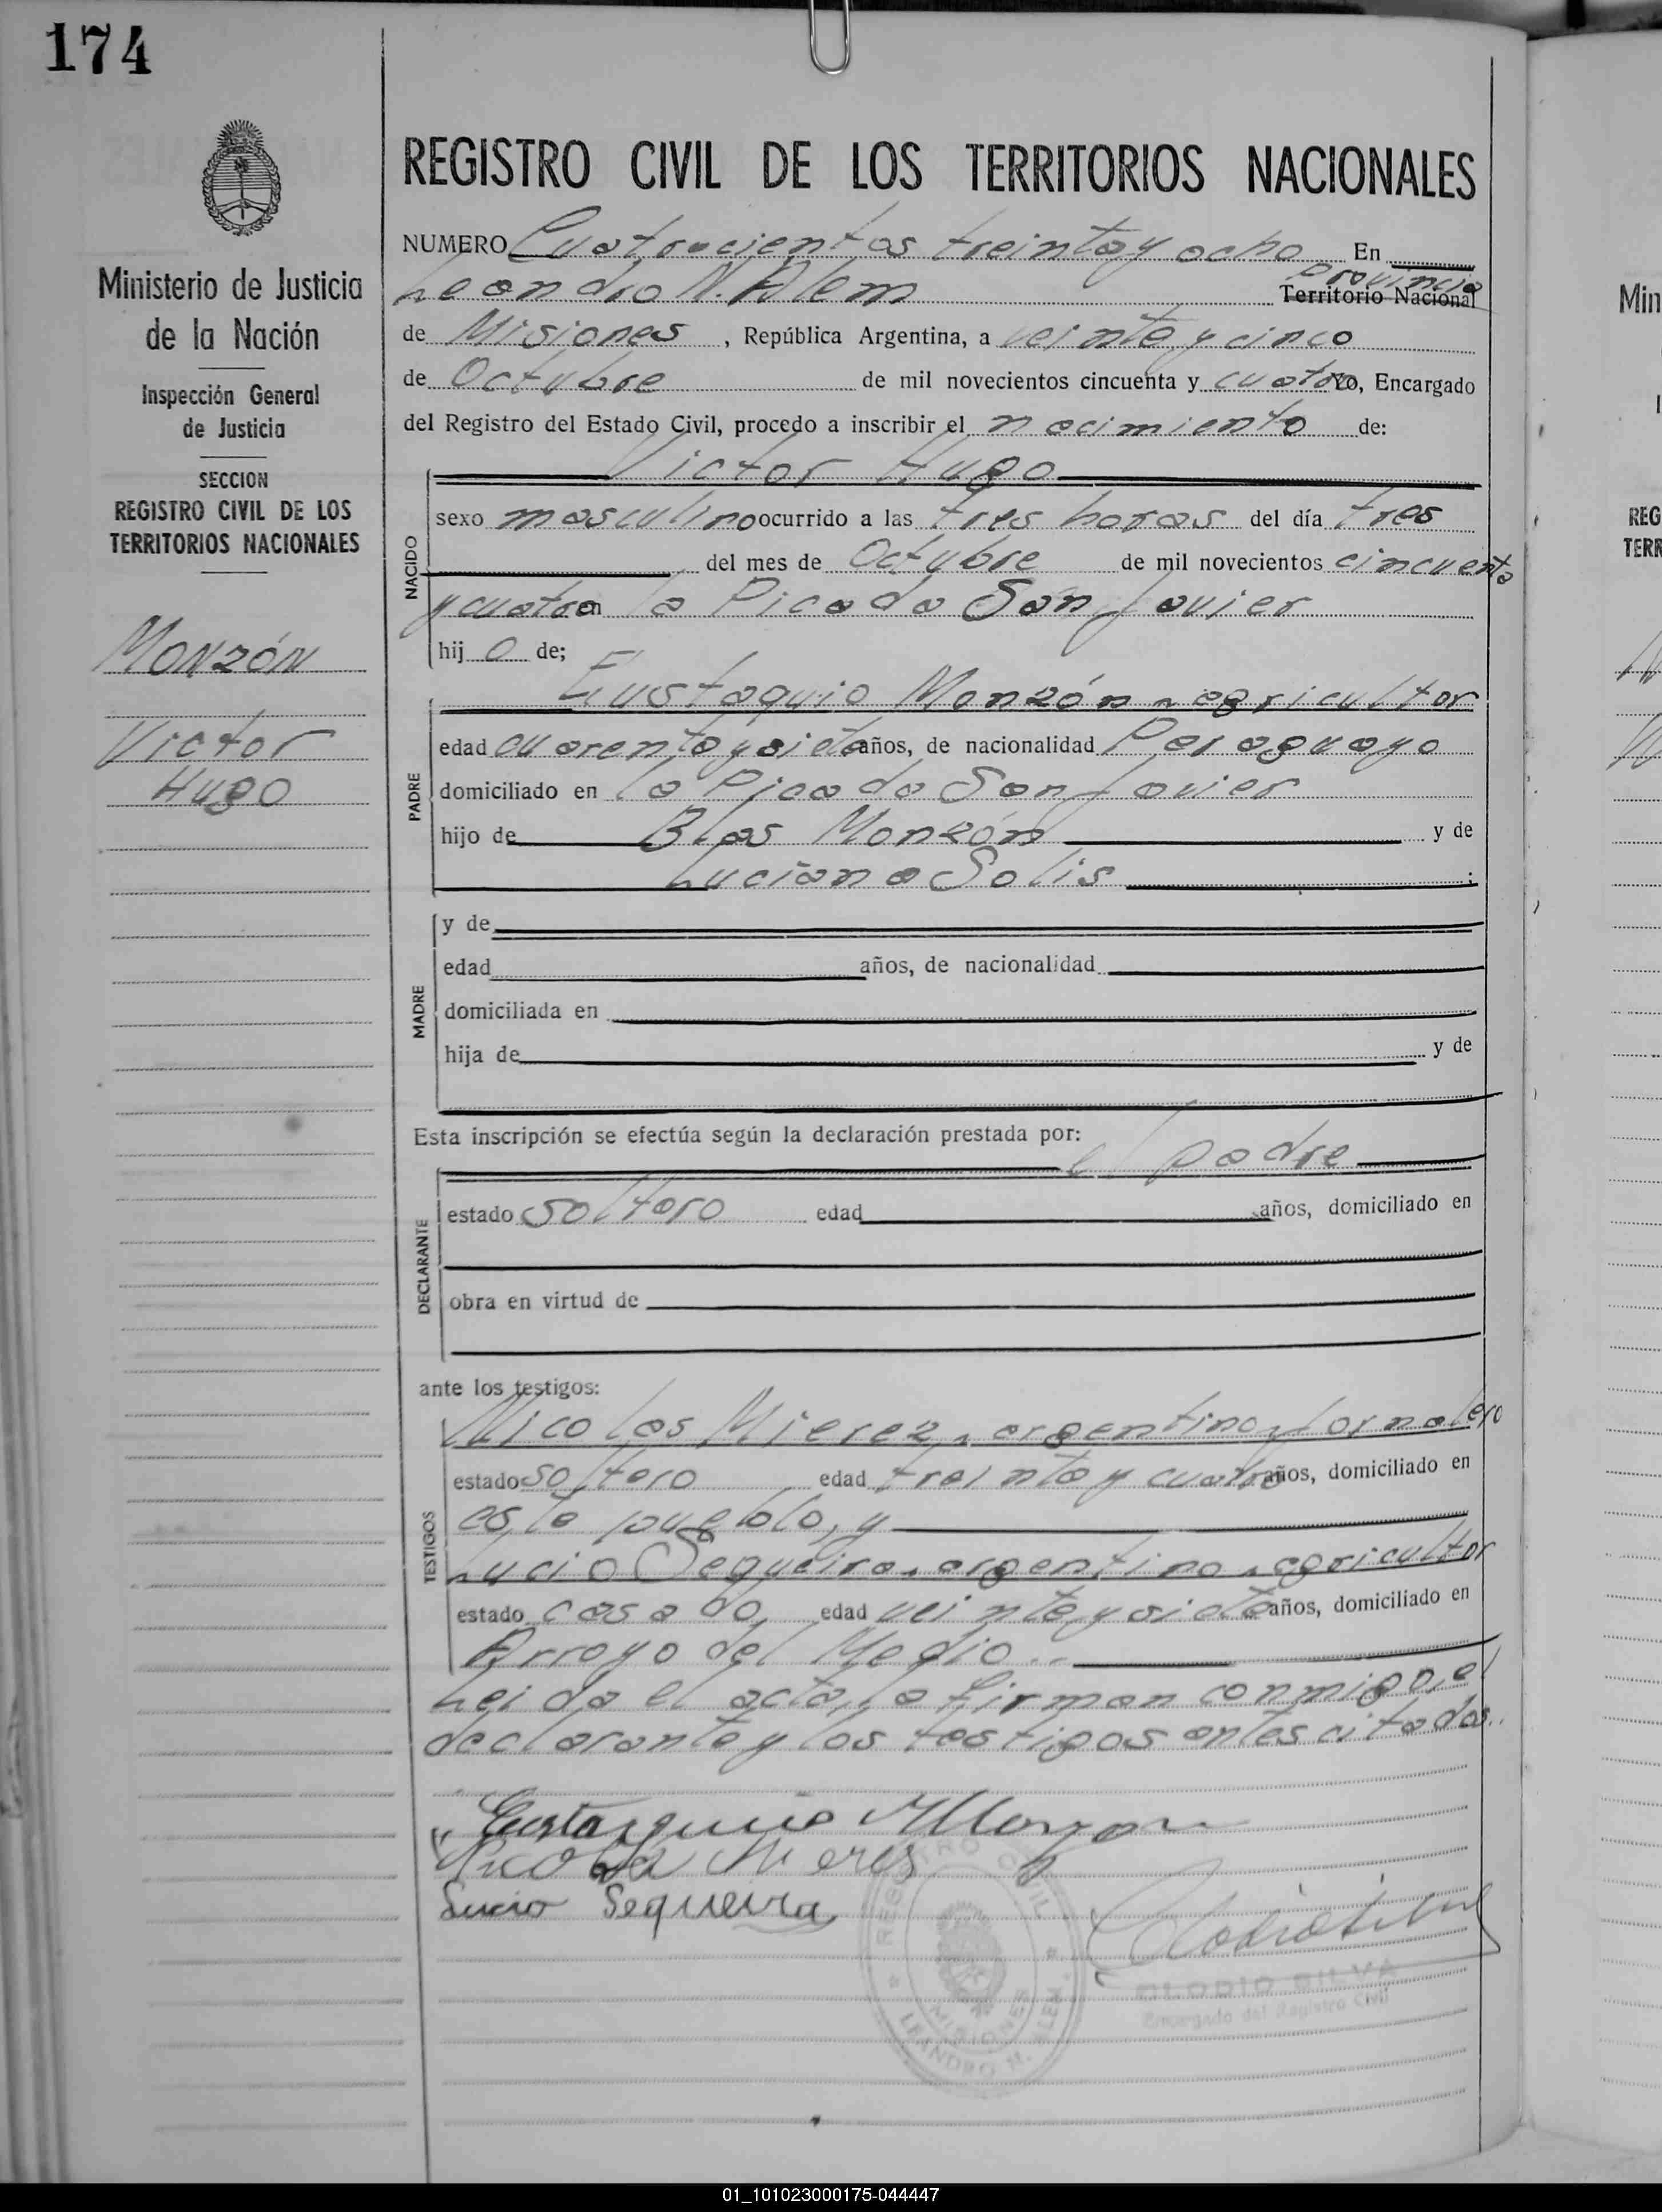 174
Ministerio de Justicia
de la Nación
Inspección General
de Justicia
SECCION
REGISTRO CIVIL DE LOS
TERRITORIOS NACIONALES
MONZÓN
Victor
Hugo
REGISTRO CIVIL DE LOS TERRITORIOS NACIONALES
NUMERO Cuatrocientos treinta y ocho En
Leandro N. Alem Territorio Nacional provincia
de Misiones, República Argentina, a veinte y cinco
de Octubre de mil novecientos cincuenta y cuatro yo, Encargado
del Registro del Estado Civil, procedo a inscribir el nacimiento de:
NACIDO
Victor Hugo
sexo masculino ocurrido a las tres horas del día tres
del mes de Octubre de mil novecientos cincuenta
y cuatro en la Picada San Javier
hij o de;
PADRE
Eustaquio Monzón, agricultor
edad cuarenta y siete años, de nacionalidad Paraguayo
domiciliado en la Picada San Javier
hijo de Blas Monzón y de
Luciana Solis;
MADRE
y de
edad años, de nacionalidad
domiciliada en
hija de y de
Esta inscripción se efectúa según la declaración prestada por:
DECLARANTE
el padre
estado soltero edad años, domiciliado en
obra en virtud de
ante los testigos:
TESTIGOS
Nicolas Mierez, argentino, jornalero
estado soltero edad treinta y cuatro años, domiciliado en
este pueblo, y
Lucio Sequeira, argentino, agricultor
estado casado, edad veinte y siete años, domiciliado en
Arroyo del Medio..
Leida el acta, la firman conmigo, el
declarante y los testigos antes citados..
Eustaquio Monzon
Nicolas Mieres
Lucio Sequeira
REGISTRO CIVIL
MISIONES
LEANDRO N. ALEM
CLODIO SILVA
Encargado del Registro Civil
Min
REG
TERR
01_101023000175-044447